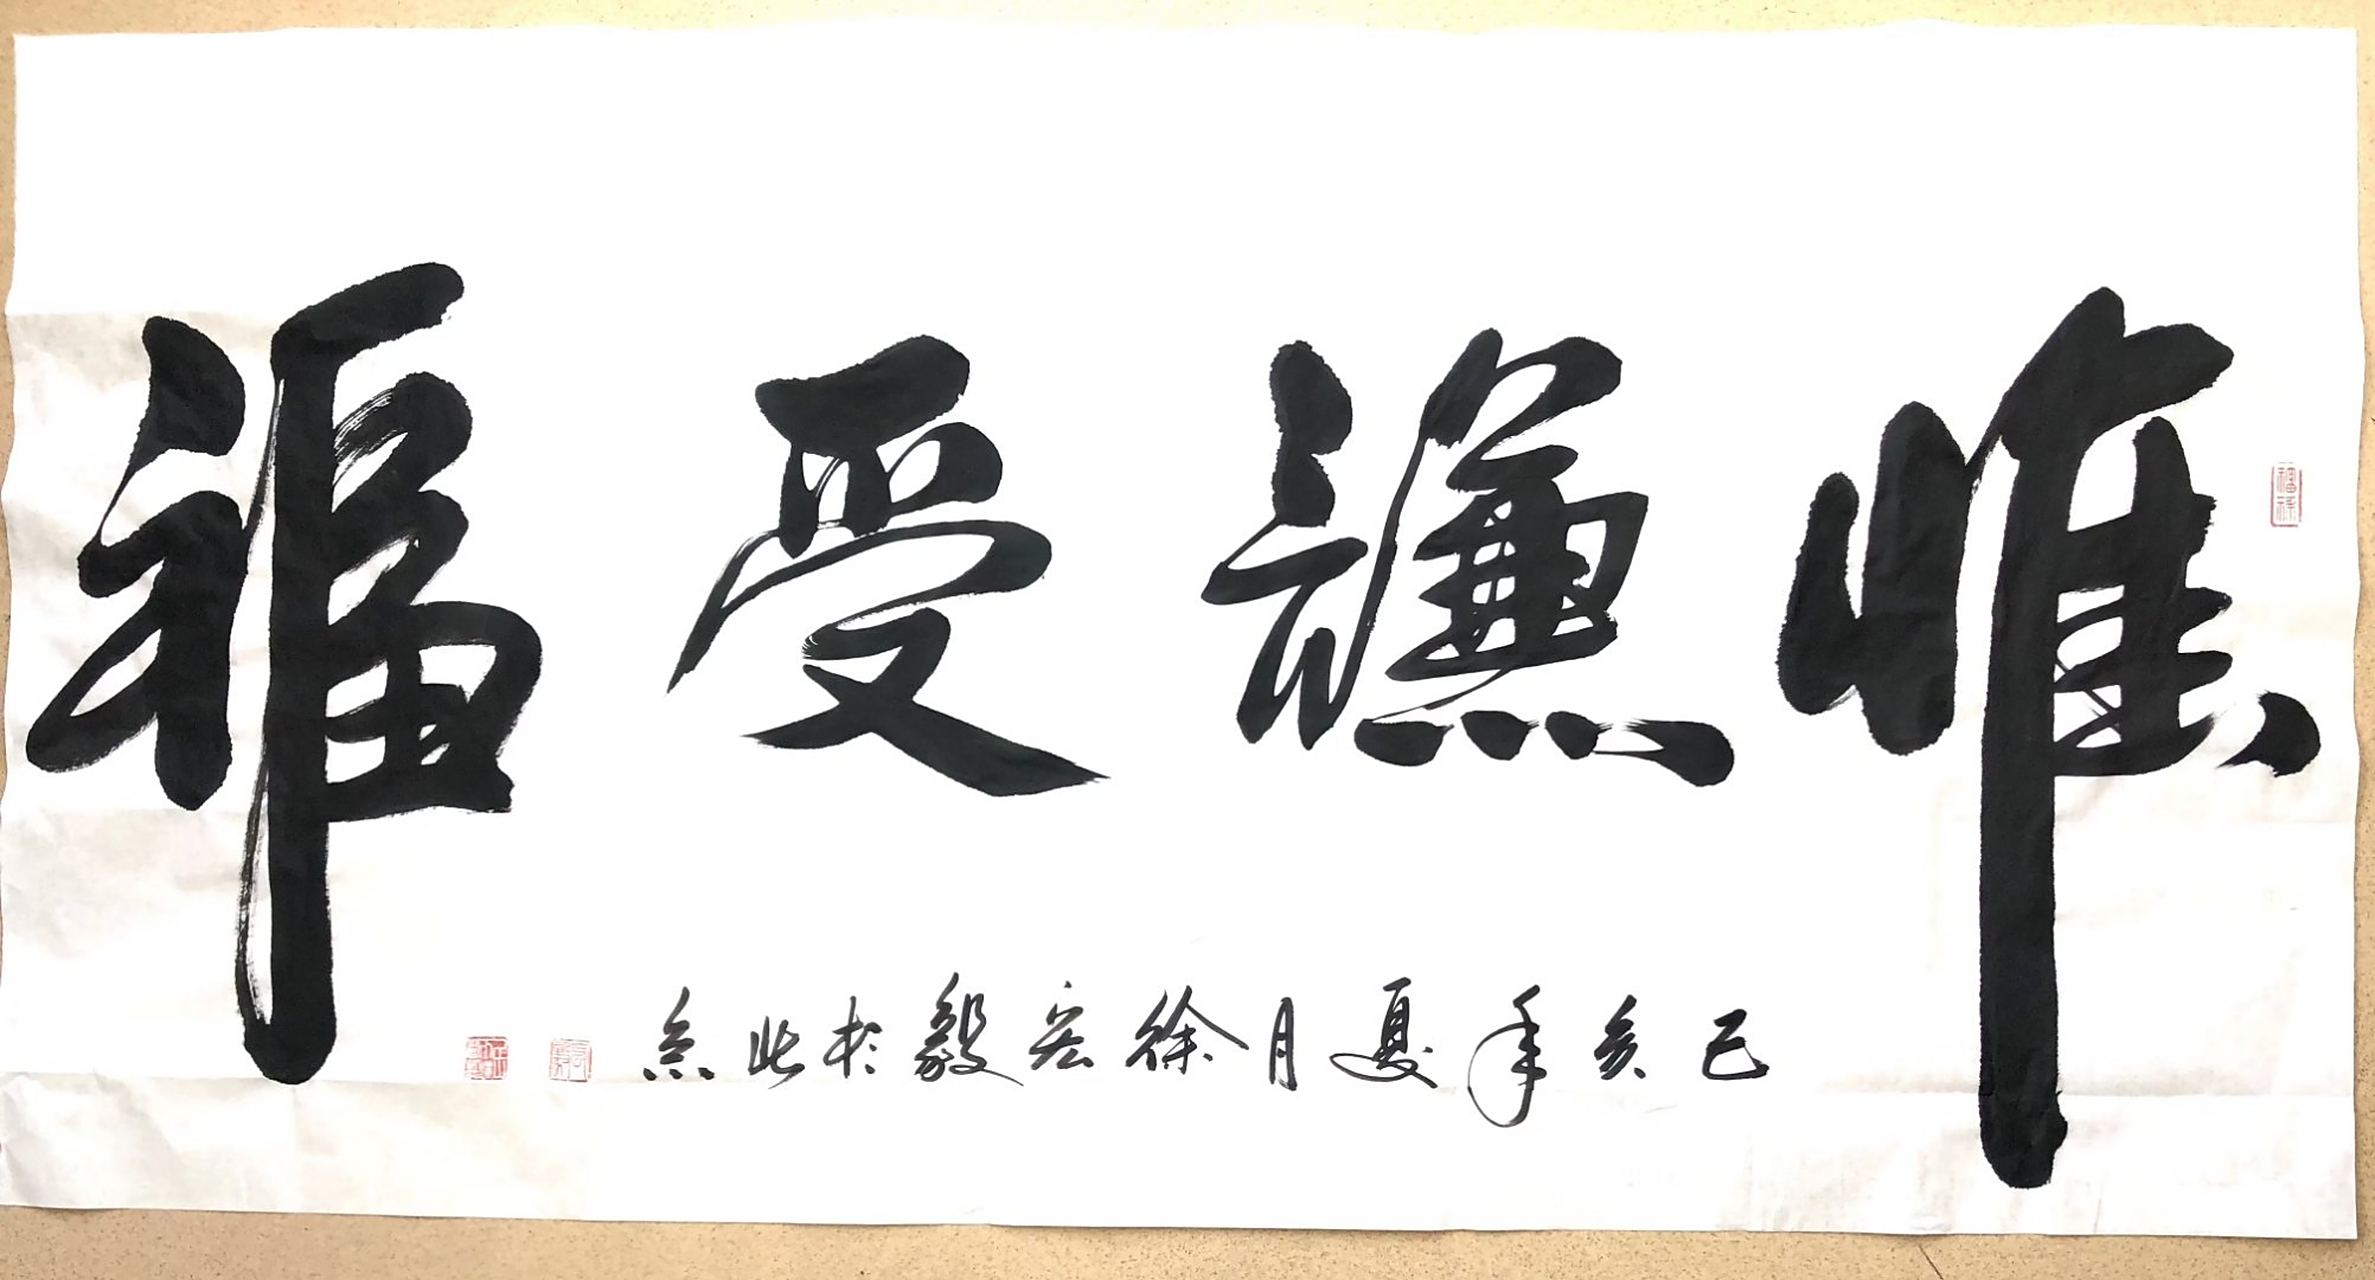 惟謙受福
己亥年夏月徐宏毅於北京